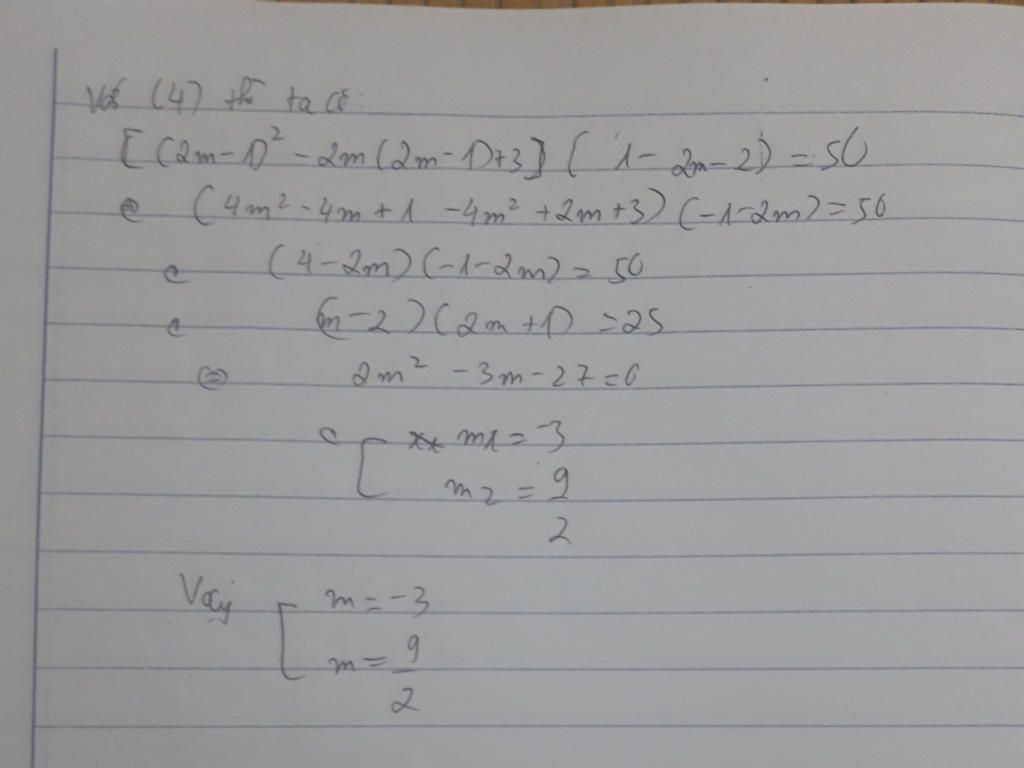 Với (4) thì ta có:
[(2m-1)² - 2m(2m-1)+3] (1- 2m-2) = 50
⇔ (4m² - 4m + 1 - 4m² + 2m + 3) (-1-2m) = 50
⇔ (4-2m)(-1-2m) = 50
⇔ (m-2)(2m+1) = 25
⇔ 2m² - 3m - 27 = 0
⇔ [ m1 = -3
m2 = 9/2
Vậy [ m = -3
m = 9/2